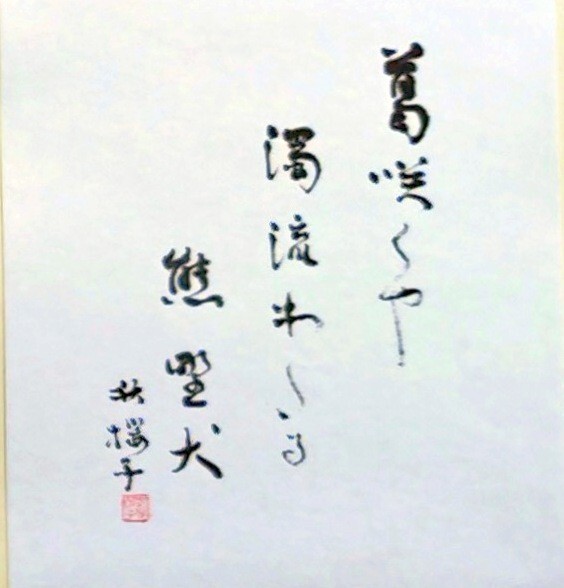 葛咲くや
濁流わたる
熊野犬
秋桜子